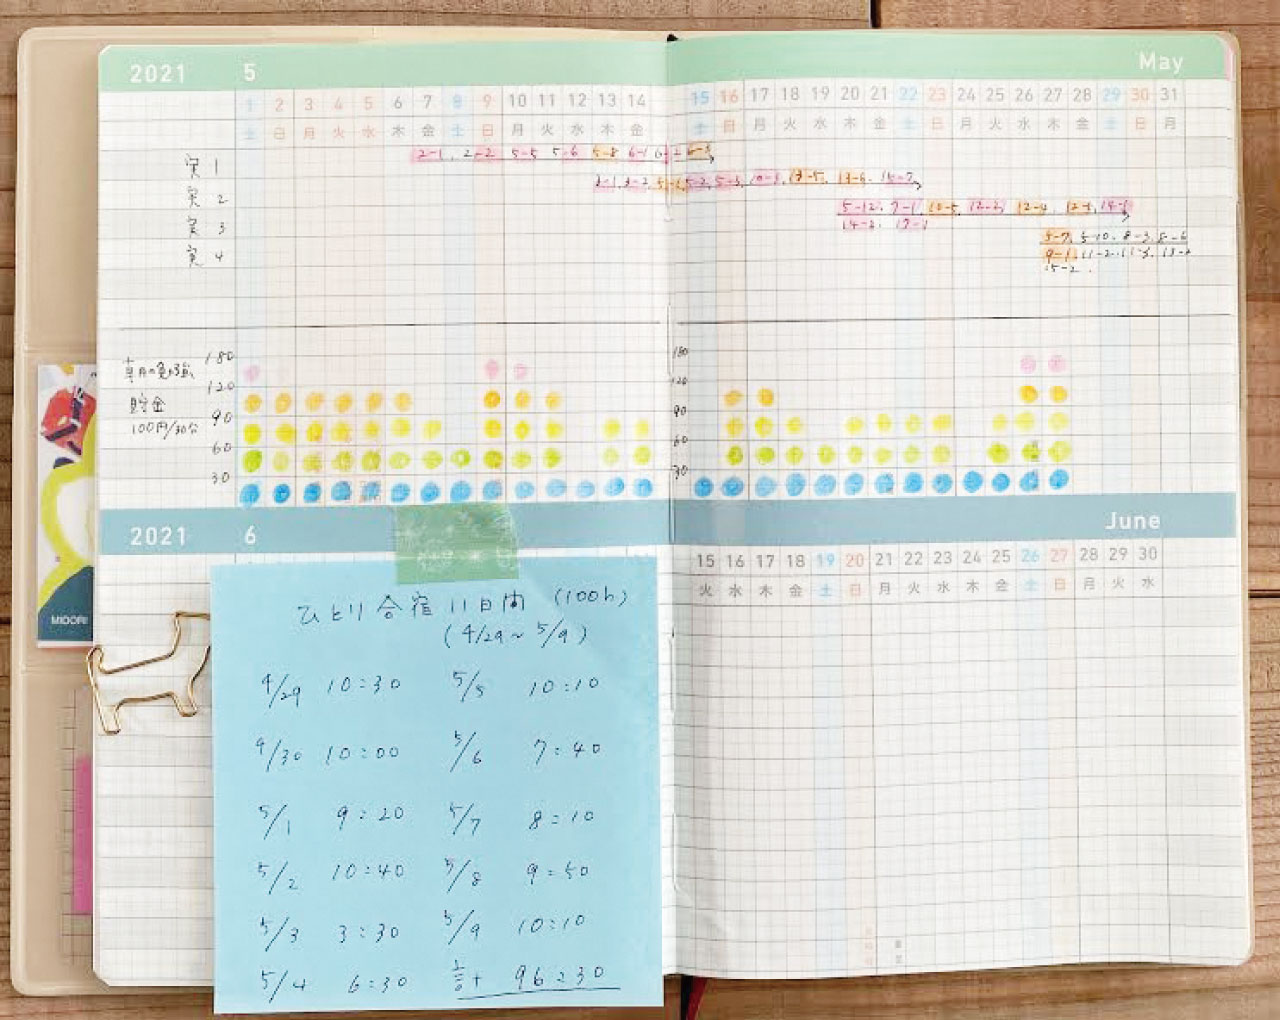 2021 5 May
1 2 3 4 5 6 7 8 9 10 11 12 13 14 15 16 17 18 19 20 21 22 23 24 25 26 27 28 29 30 31
土 日 月 火 水 木 金 土 日 月 火 水 木 金 土 日 月 火 水 木 金 土 日 月 火 水 木 金 土 日 月
実1 2-1. 2-2 5-5 5-6 5-8 6-1 6-2 6-3
実2 3-1. 3-2 5-2 5-3 10-3 13-5. 13-6. 15-7
実3 5-12. 7-1. 10-5. 12-2. 12-4 12-5. 14-1
14-2. 17-1
実4 5-7. 5-10. 8-3. 8-6
9-1. 11-2. 11-3.
15-2.
180 180
朝の勉強
120 120
貯金
90 90
100円/30分
60 60
30 30
2021 6 June
15 16 17 18 19 20 21 22 23 24 25 26 27 28 29 30
火 水 木 金 土 日 月 火 水 木 金 土 日 月 火 水
MIDORI
ひとり合宿 11日間 (100h)
(4/29~5/9)
4/29 10:30 5/5 10:10
4/30 10:00 5/6 7:40
5/1 9:20 5/7 8:10
5/2 10:40 5/8 9:50
5/3 3:30 5/9 10:10
5/4 6:30 計 96:30